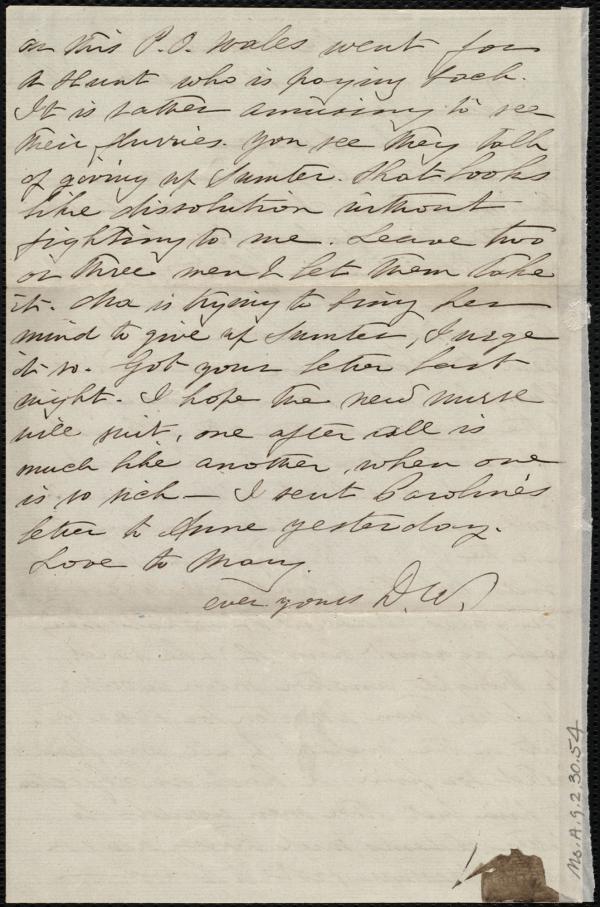 on this P.O. Wales went for
a Hunt who is paying back.
It is rather amusing to see
their flurries. You see they talk
of giving up Sumter. that looks
like dissolution without
fighting to me. Leave two
or three men & let them take
it. is trying to bring her
mind to give up Sumter, I urge
it so. Got your letter last
night. I hope the new nurse
will suit, one after all is
much like another, when one
is so sick — I sent Caroline's
letter to Anne yesterday.
Love to Mary.
ever yours D.W.
Ms. A. 9. 2. 30. 54